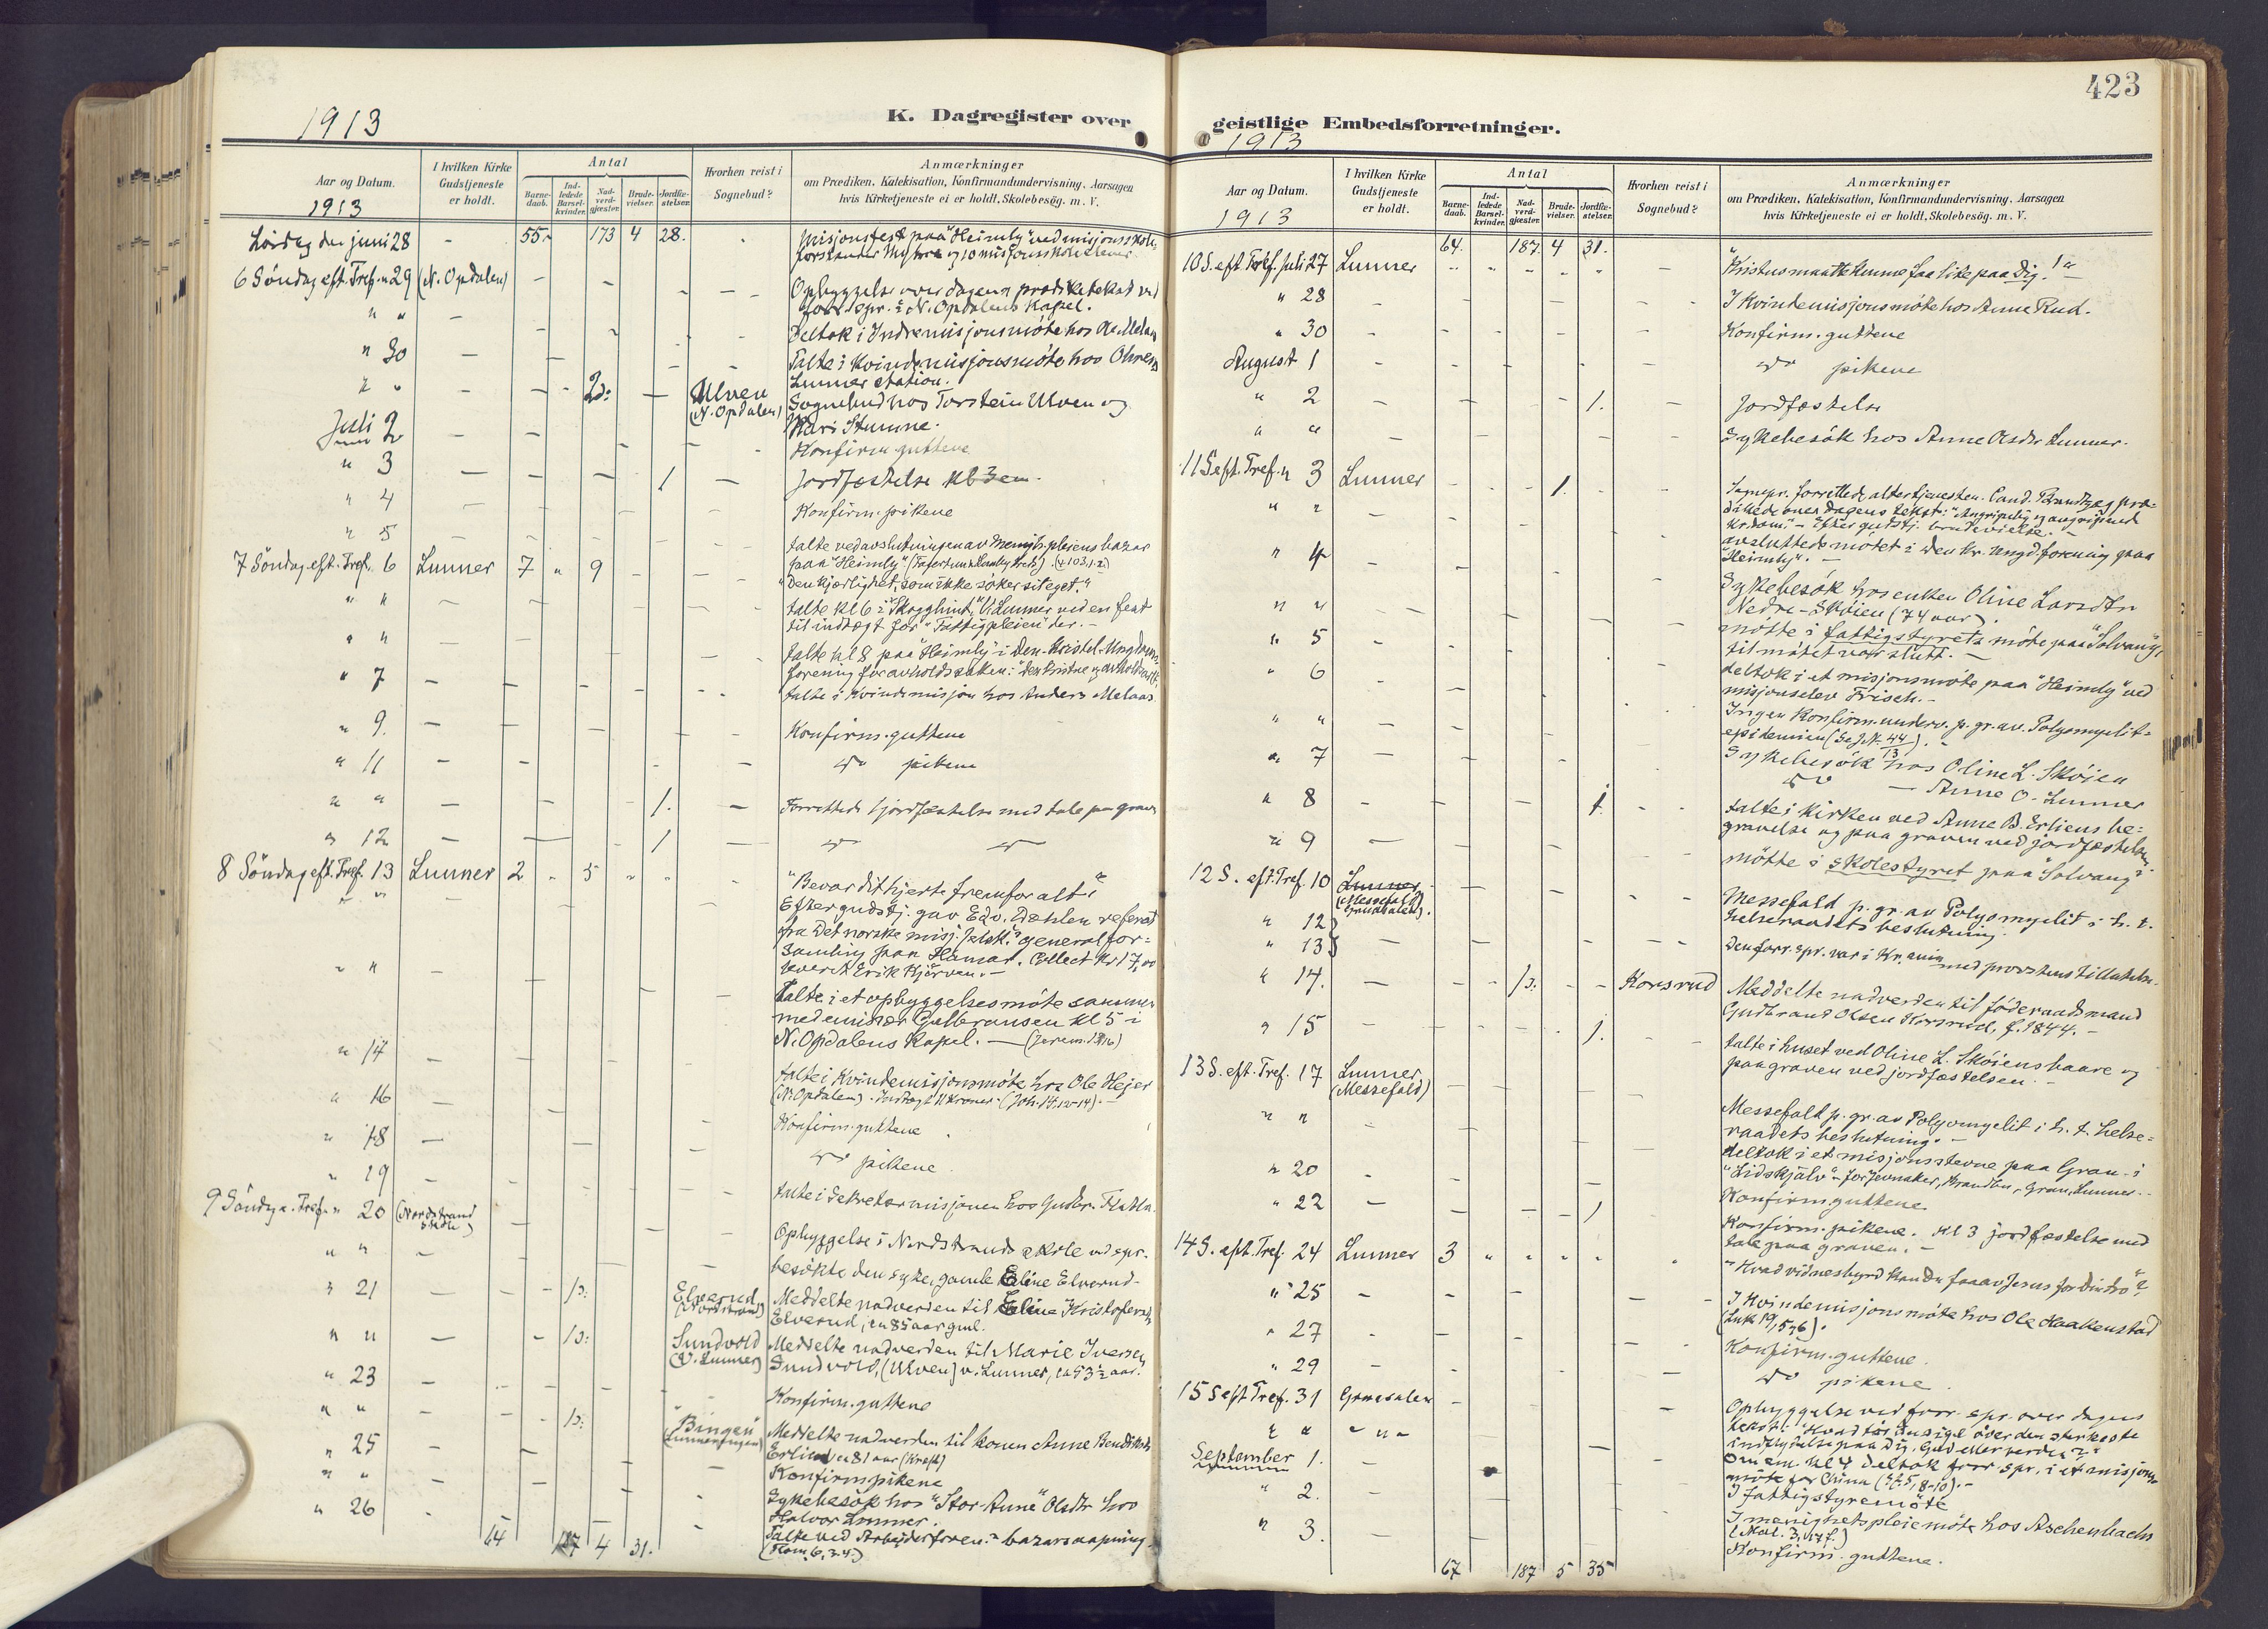 423
1913
K. Dagregister over
Aar og Datum.
1913
I hvilken Kirke
Gudstjeneste
er holdt.
Antal
Barne-
daab.
Ind-
ledede
Barsel-
kvinder.
Nad-
verd-
gjæster.
Brude-
vielser.
Jordfæ-
stelser.
Hvorhen reist i
Sognebud?
Anmærkninger
om Prædiken, Katekisation, Konfirmandundervisning, Aarsagen
hvis Kirketjeneste ei er holdt, Skolebesøg. m. V.
Lørdag den juni 28 - 55 173 4 28. Misjonsfest paa "Heimly" ved misjonsskole-
forstander og 10 misjonsskoleelever
6 Søndag eft. Tref. " 29 (N. Opdalen) - Opbyggelse over dagens prædiketekst ved
spr. i N. Opdalens Kapel.
" " - Deltok i Indremisjonsmøte hos Ole Melaas
" 30 - Talte i Kvindemisjonsmøte hos
Lunner station.
" " - 2 Ulven
(N. Opdalen) Sognebud hos Torstein Ulven og
Kari Stumne.
Juli 2 - Konfirm. guttene
" 3 - 1 - Jordfæstelse kl 3 em.
" 4 - Konfirm. pikene
" 5 - talte ved avslutningen av menigh.pleiens bazar
paa "Heimly" (103,1.2.)
7 Søndag eft. Tref. 6 Lunner 7 " 9 "Den kjærlighet, som ikke søker sit eget."
" " - talte kl 6 i "Skogghint", V. Lunner ved en fest
til indtægt for "Fattigpleien" der. -
" " - talte kl 8 paa "Heimly" i Den Kristel. Ungdoms-
forening for avholdssaken:
" 7 - talte i Kvindemisjon hos Anders Melaas
" 9. - Konfirm. guttene
" 11 - do pikene
" " - 1. - Forrettede 1 jordfæstelse med tale paa graven
" 12 - 1 - do do
8 Søndag eft. Tref. 13 Lunner 2 " 5 " " "Bevar dit hjerte fremfor alt"
" " Efter gudstj. gav Edv. Dæhlen referat
fra Det norske misj. selsk.s generalfor-
samling paa Hamar. Collect kr 17,00
Erik Kjørven. -
" " - Talte i et opbyggelsesmøte sammen
med emissær Gulbransen kl 5 i
N. Opdalens Kapel. -
" 14 - talte i Kvindemisjonsmøte hos Ole Hejer
(N. Opdalen). Indtægt 11 kroner. (Joh. 14,12-14). -
" 16 - Konfirm. guttene
" 18 - do pikene
" 19 - talte i Sekretærmisjonen hos Gudbr. Flatla
9 Søndag e. Tref. " 20 (Nordstrand
skole) Opbyggelse i Nordstrands skole ved spr.
" " - besøkte den syke, gamle Eline Elverud-
" 21 - 1 Elverud
(Nordstrand) Meddelte nadverden til Eline Kristofersd.
Elverud, ca 85 aar gml.
" " - 1 Sundvold
(V. Lunner) Meddelte nadverden til Marie Iversen
Sundvold, (Ulven) v. Lunner, ca 93 ½ aar.
" 23 - Konfirm. guttene
" " - 1 "Bingen" Meddelte nadverden til konen Anne Bendiksd.
Erlien ca 81 aar (kreft)
" 25 - Konfirm pikene
" " Sykebesøk hos "Stor-Anne" Olsdtr hos
Halvor Lunner.
" 26 - Talte ved Arbeiderforen.s bazarsaapning.
(Rom. 6, 3.4)
64 187 4 31.
geistlige Embedsforretninger.
1913
Aar og Datum.
1913
I hvilken Kirke
Gudstjeneste
er holdt.
Antal
Barne-
daab.
Ind-
ledede
Barsel-
kvinder.
Nad-
verd-
gjæster.
Brude-
vielser.
Jordfæ-
stelser.
Hvorhen reist i
Sognebud?
Anmærkninger
om Prædiken, Katekisation, Konfirmandundervisning, Aarsagen
hvis Kirketjeneste ei er holdt, Skolebesøg. m. V.
64. 187. 4 31.
10 S. eft. Tref. juli 27 Lunner "Kristus maatte kunne faa lite paa dig!"
" 28 - I Kvindemisjonsmøte hos Anne Rud.
" 30 - Konfirm. guttene
August 1 - do pikene
" 2 - 1. - Jordfæstelse
" " - Sykebesøk hos Anne Olsdtr Lunner.
11 S. eft. Tref. " 3 Lunner 1. Sognepr. forrettede altertjenesten. Cand. præ-
dikede over dagens tekst: "Angripelig og angripende
kr.dom." - Efter gudstj. brudevielse. -
" " - avsluttede møtet i den kr. ungd.forening paa
"Heimly". -
" 4 - Sykebesøk hos enken Oline Larsdtr
Nedre-Skøien (74 aar).
" " møtte i fattigstyrets møte paa "Solvang",
til møtet var slutt. -
" 5 - deltok i et misjonsmøte paa "Heimly" ved
misjonselev Frisch. -
" 6 - Ingen Konfirm.underv. p. gr. av. Polyomyelit-
epidemien (Se J.N. 44/13). -
" " - Sykebesøk hos Oline L. Skøien
" 7 - do - Anne O. Lunner
" 8 - 1. talte i kirken ved Anne B. Erliens be-
gravelse og paa graven ved jordfæstelsen.
" 9 - møtte i skolestyret paa "Solvang"
12 S. eft. Tref. 10 Lunner
(Messefald
Grindvalen). Messefald p. gr. av Polyomyelit i h. t.
helseraadets beslutning.
" 12
" 13 - Den forr. spr. var i Kr.ania med provstens tillatelse.
" 14. - 1 - Korsrud Meddelte nadverden til føderaadsmand
Gudbrand Olsen Korsrud, f. 1844. -
" 15 - 1. talte i huset ved Oline L. Skøiens baare og
paa graven ved jordfæstelsen. -
13 S. eft. Tref. 17 Lunner
(Messefald) Messefald p. gr. av Polyomyelit i h. t. helse-
raadets beslutning. -
" " deltok i et misjonsstevne paa Gran i
"Lidskjalv" for Jevnaker, Brandbu, Gran, Lunner. -
" 20 - Konfirm. guttene
" 22 - 1 Konfirm. pikene. Kl 3 jordfæstelse med
tale paa graven. -
14 S. eft. Tref. 24 Lunner 3 " " " " "Hvad vidnesbyrd kan du faa av Jesus for din tro"?
" 25 - I Kvindemisjonsmøte hos Ole Haakenstad
(Luk 19, 5.6).
" 27 - Konfirm. guttene
" 29 - do pikene
15 S. eft Tref. 31 Opbyggelse ved forr. spr. over dagens
tekst: "Hvad øver den sterkeste
indflydelse paa dig, Gud eller verden"?
" " - " - Om em. kl 4 deltok forr. spr. i et misjons-
møte for China
September 1. I fattigstyremøte
" 2. - I menighetspleiemøte hos Aschenbach
" 3. - Konfirm. guttene.
67 187 5 35